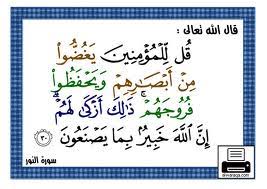 قال الله تعالى :
قُل لِّلْمُؤْمِنِينَ يَغُضُّوا۟
مِنْ أَبْصَـٰرِهِمْ وَيَحْفَظُوا۟
فُرُوجَهُمْ ۚ ذَٰلِكَ أَزْكَىٰ لَهُمْ ۗ
إِنَّ ٱللَّهَ خَبِيرٌۢ بِمَا يَصْنَعُونَ ٣٠
سورة النور